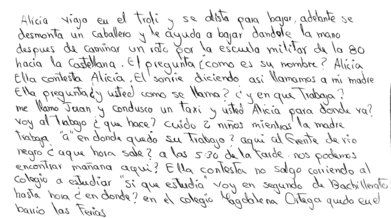 Alicia viaja en el troli y se alista para bajar, adelante se
desmonta un caballero y le ayuda a bajar dandole la mano
despues de caminar un rato por la escuela militar de la 80
hacia la Castellana. El pregunta ¿como es su nombre? Alicia
Ella contesta Alicia. El sonrie diciendo asi llamamos a mi madre
Ella pregunta ¿y usted como se llama? ¿y en que Trabaja?
me llamo Juan y condusco un taxi y usted Alicia para donde va?
voy al Trabajo ¿que hace? cuido 2 niños mientras la madre
Trabaja. "a" en donde queda su Trabajo? aqui al frente de rio
negro ¿a que hora sale? a las 5:30 de la tarde. nos podemos
encontrar mañana aqui? Ella contesta no salgo corriendo al
colegio a estudiar "si que estudia voy en segundo de Bachillerato
hasta hora ¿en donde? en el colegio Magdalena Ortega queda en el
barrio las Ferias